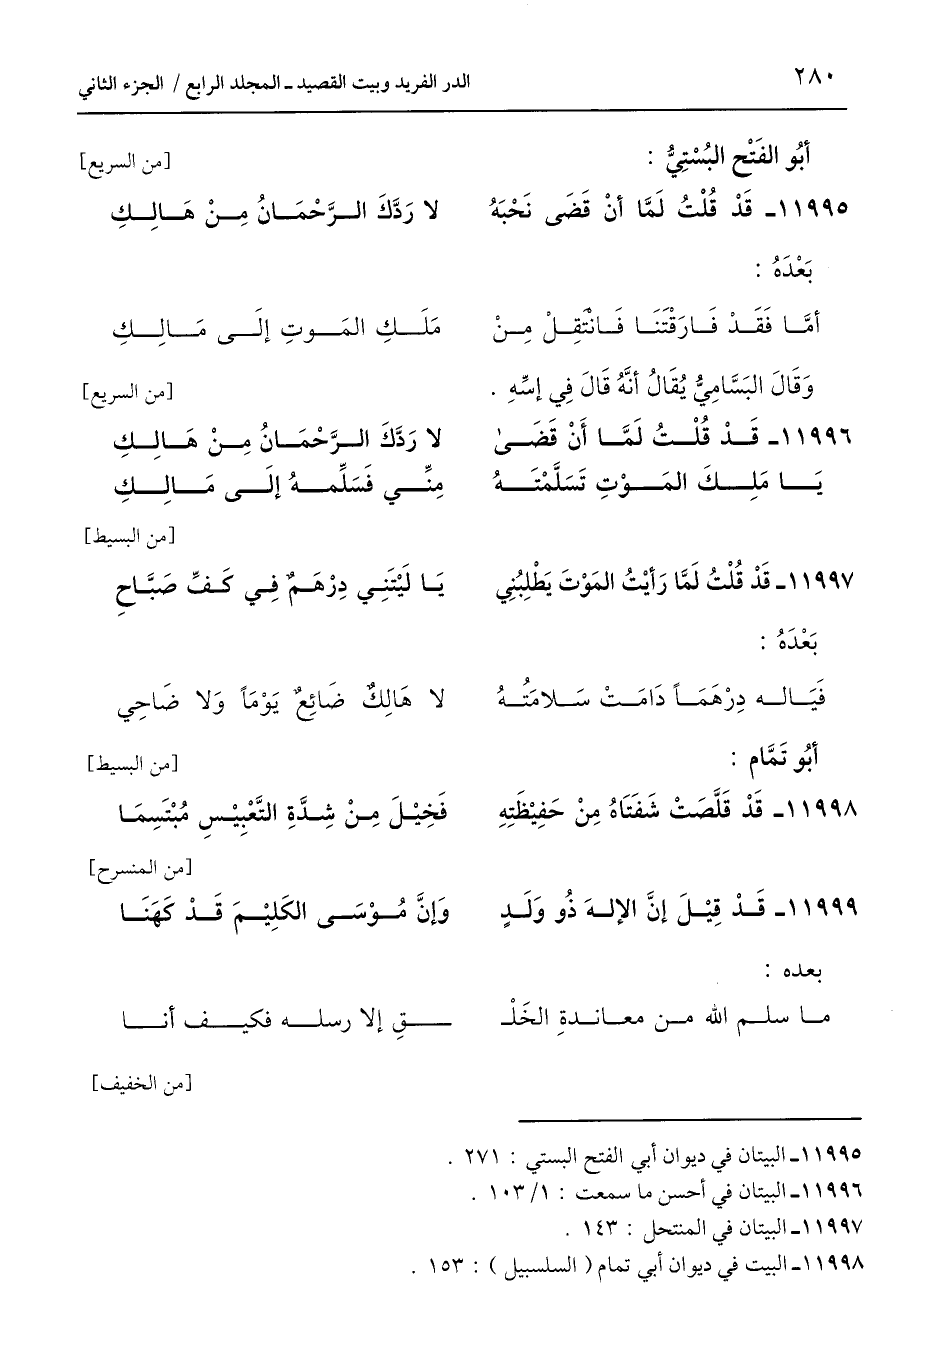 ٢٨٠ الدر الفريد وبيت القصيد ـ المجلد الرابع / الجزء الثاني
أَبُو الفَتْحِ البُسْتِيُّ : [من السريع]
١١٩٩٥ـ قَدْ قُلْتُ لَمَّا أنْ قَضَى نَحْبَهُ لا رَدَّكَ الرَّحْمَانُ مِنْ هَالِكِ
بَعْدَهُ :
أمَّا فَقَدْ فَارَقْتَنَا فَانْتَقِلْ مِنْ مَلَكِ المَوتِ إلَى مَالِكِ
وَقَالَ البَسَّامِيُّ يُقَالُ أنَّهُ قَالَ فِي إسِّهِ . [من السريع]
١١٩٩٦ـ قَدْ قُلْتُ لَمَّا أَنْ قَضَىٰ لا رَدَّكَ الرَّحْمَانُ مِنْ هَالِكِ
يَا مَلِكَ المَوْتِ تَسَلَّمْتَهُ مِنِّي فَسَلِّمهُ إلَى مَالِكِ
[من البسيط]
١١٩٩٧ـ قَدْ قُلْتُ لَمَّا رَأيْتُ المَوْتَ يَطْلِبُنِي يَا لَيْتَنِي دِرْهَمٌ فِي كَفِّ صَبَّاحِ
بَعْدَهُ :
فَيَاله دِرْهَمَاً دَامَتْ سَلامَتُهُ لا هَالِكٌ ضَائِعٌ يَوْمَاً وَلا ضَاحِي
أبُو تَمَّام : [من البسيط]
١١٩٩٨ـ قَدْ قَلَّصَتْ شَفَتَاهُ مِنْ حَفِيْظَتِهِ فَخِيْلَ مِنْ شِدَّةِ التَّعْبِيْسِ مُبْتَسِمَا
[من المنسرح]
١١٩٩٩ـ قَدْ قِيْلَ إنَّ الإلهَ ذُو وَلَدٍ وَإنَّ مُوْسَى الكَلِيْمَ قَدْ كَهَنَا
بعده :
ما سلم الله من معاندةِ الخَلْـ ـقِ إلا رسله فكيف أنا
[من الخفيف]
١١٩٩٥ـ البيتان في ديوان أبي الفتح البستي : ٢٧١ .
١١٩٩٦ـ البيتان في أحسن ما سمعت : ١٠٣/١ .
١١٩٩٧ـ البيتان في المنتحل : ١٤٣ .
١١٩٩٨ـ البيت في ديوان أبي تمام ( السلسبيل ) : ١٥٣ .